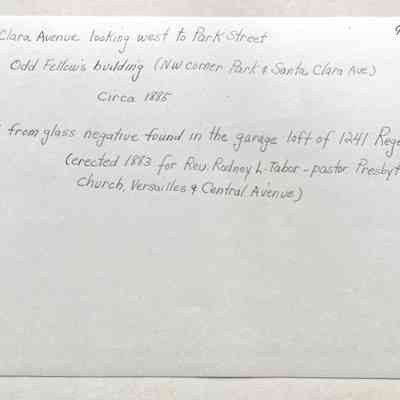 Clara Avenue looking west to Park Street
Odd Fellow's building (NW corner Park & Santa Clara Ave)
Circa 1885
from glass negative found in the garage loft of 1241 Rege
(erected 1883 for Rev. Rodney L. Tabor - pastor Presbyt
Church, Versailles & Central Avenue)